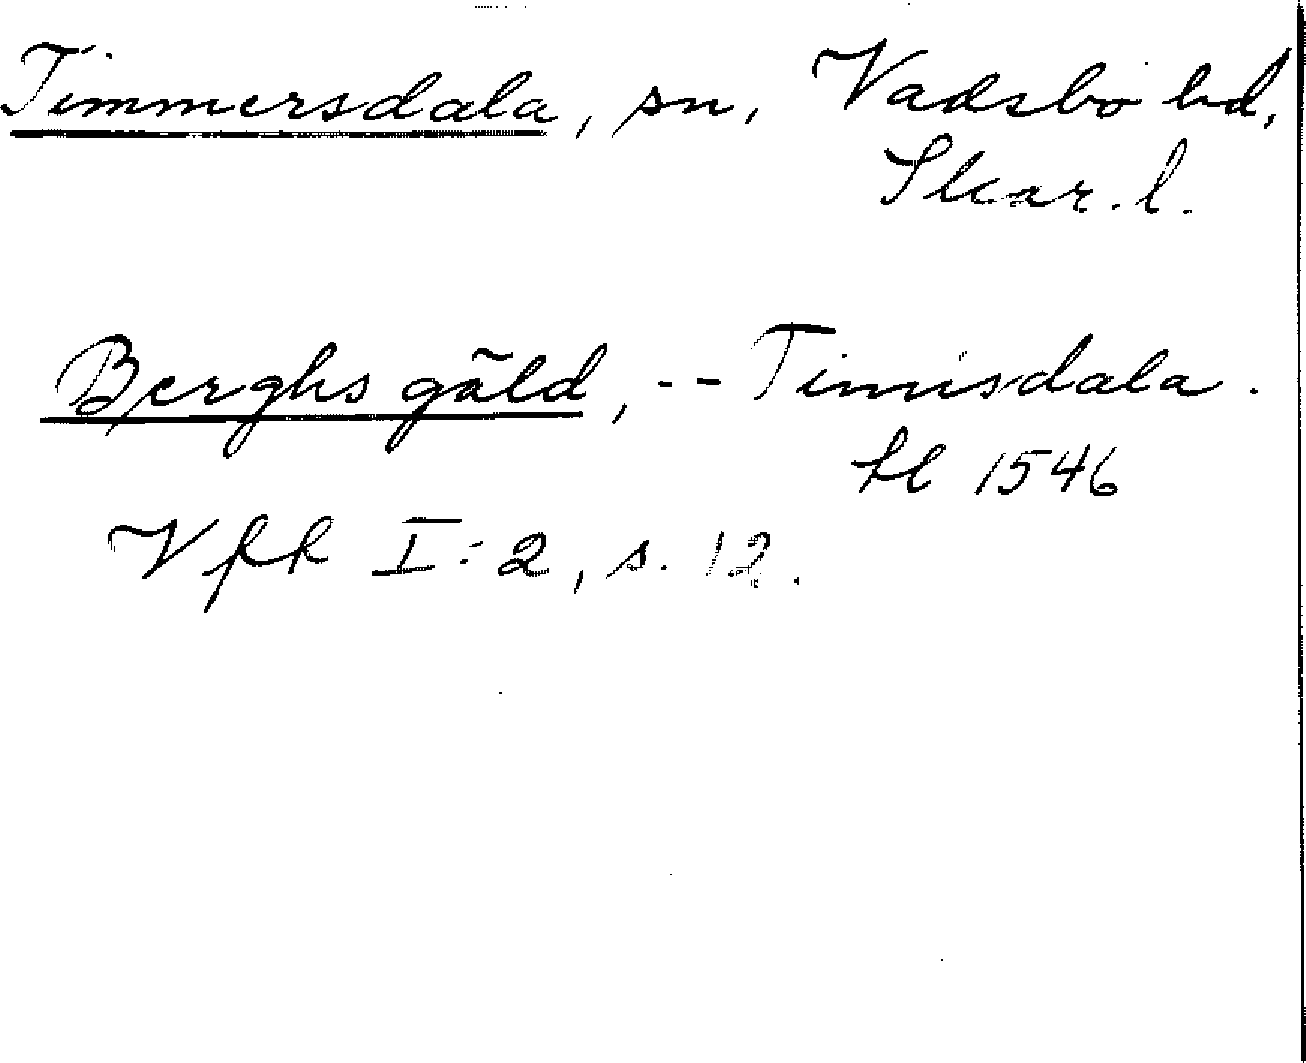 Timmersdala, sn, Vadsbo hd,
Skar. l.
Berghs gäld, -- Timisdala.
hl 1546
Vfk I:2, s. 12.